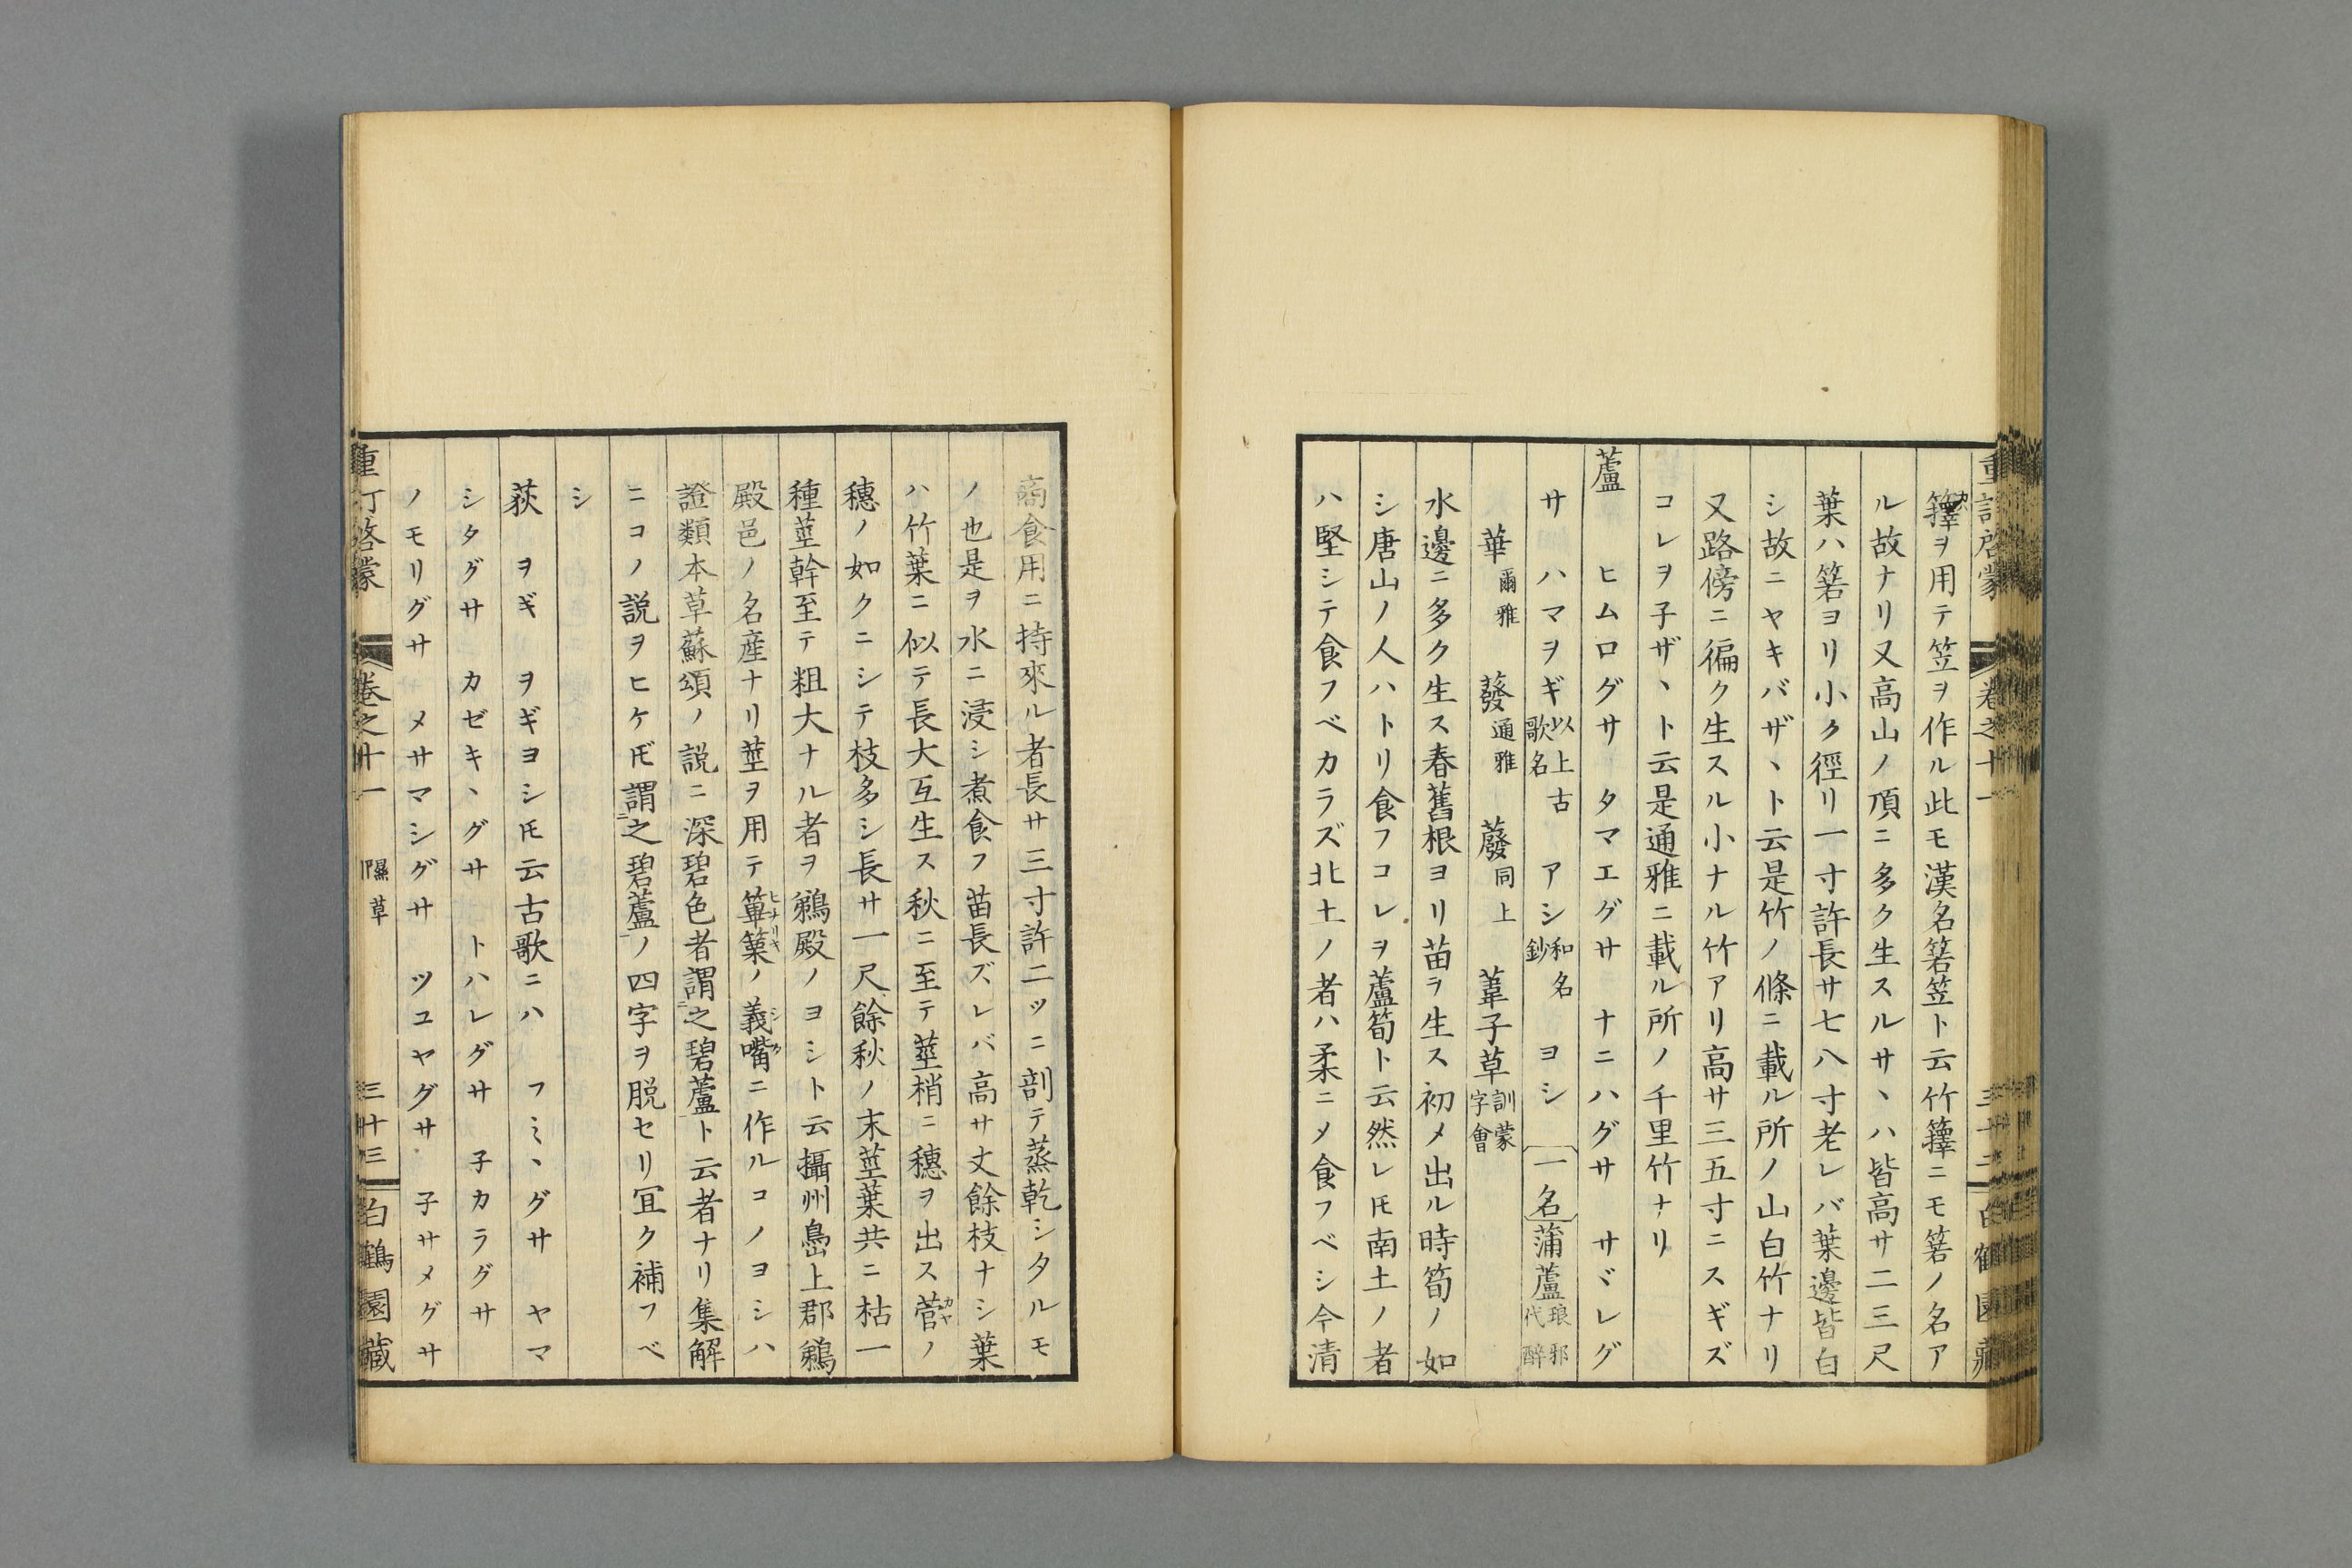 籜ヲ用テ笠ヲ作ル此モ漢名箬笠ト云竹籜ニモ箬ノ名ア
ル故ナリ又高山ノ頂ニ多ク生スルサヽハ皆高サ二三尺
葉ハ箬ヨリ小ク徑リ一寸許長サ七八寸老レバ葉邊皆白
シ故ニヤキバザヽト云是竹ノ條ニ載ル所ノ山白竹ナリ
又路傍ニ徧ク生スル小ナル竹アリ高サ三五寸ニスギズ
コレヲ子ザヽト云是通雅ニ載ル所ノ千里竹ナリ
蘆 ヒムログサ タマエグサ ナニハグサ サヾレグ
サ ハマヲギ以上古歌名 アシ和名鈔 ヨシ 一名蒲蘆琅邪代醉
葦爾雅 蕟通雅 蘑同上 葦子草訓蒙字會
水邊ニ多ク生ス春舊根ヨリ苗ヲ生ス初メ出ル時筍ノ如
シ唐山ノ人ハトリ食フコレヲ蘆筍ト云然レ𪜈南土ノ者
ハ堅シテ食フベカラズ北土ノ者ハ柔ニメ食フベシ今清
商食用ニ持來ル者長サ三寸許二ツニ剖テ蒸乾シタルモ
ノ也是ヲ水ニ浸シ煮食フ苗長ズレバ高サ丈餘枝ナシ葉
ハ竹葉ニ似テ長大互生ス秋ニ至テ莖梢ニ穗ヲ出ス菅カヤノ
穗ノ如クニシテ枝多シ長サ一尺餘秋ノ末莖葉共ニ枯一
種莖幹至テ粗大ナル者ヲ鵜殿ノヨシト云攝州島上郡鵜
殿邑ノ名産ナリ莖ヲ用テ篳篥ヒチリキノ義嘴シタニ作ルコノヨシハ
證類本草蘇頌ノ説ニ深碧色者謂之碧蘆ト云者ナリ集解
ニコノ説ヲヒケ𪜈謂之碧蘆ノ四字ヲ脱セリ冝ク補フベ
シ
荻 ヲギ ヲギヨシ𪜈云古歌ニハ フミヽグサ ヤマ
シタグサ カゼキヽグサ トハレグサ 子カラグサ
ノモリグサ メサマシグサ ツユヤグサ 子サメグサ
重訂啓蒙 卷之十一 隰草 三十三 白鶴園藏